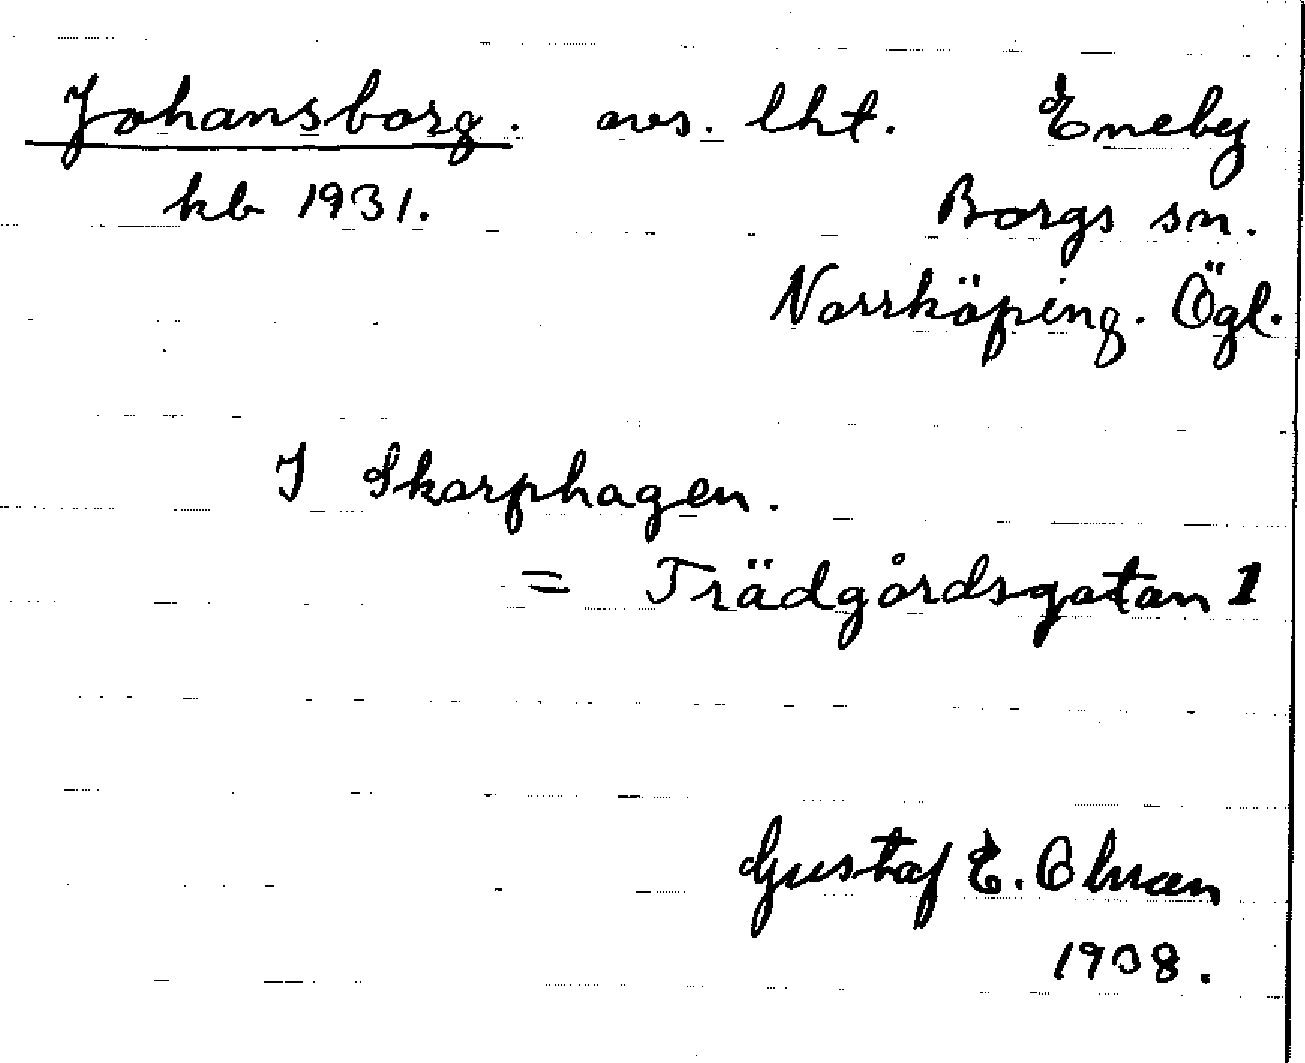 Johansborg. avs. lht. Eneby
kb 1931. Borgs sn.
Norrköping. Ögl.
I Skarphagen.
= Trädgårdsgatan 1
Gustaf E. Ohman
1938.